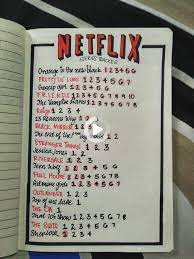 NETFLIX
SERIES TRACKER
Orange is the new black 1 2 3 4 5 6
PRETTY LITTLE LIARS 1 2 3 4 5 6 7
Gossip girl 1 2 3 4 5 6
F.R.I.E.N.D.S 1 2 3 4 5 6 7 8 9
The Vampire diaries 1 2 3 4 5 6 7 8
Reign 1 2 3 4
13 Reasons Why 1 2
BLACK MIRROR 1 2 3 4
End of the f***ing world 1
STRANGER THINGS 1 2
Jessica Jones 1 2
RIVERDALE 1 2 3
Teen Wolf 1 2 3 4 5 6
FULL HOUSE 1 2 3 4 5 6 7 8
Gilmore girls 1 2 3 4 5 6 7
OUTLANDER 1 2 3
Stage
THE OA 1
That 70s Show 1 2 3 4 5 6 7 8
THE SUITS 1 2 3 4 5 6 7
Sherlock 1 2 3 4